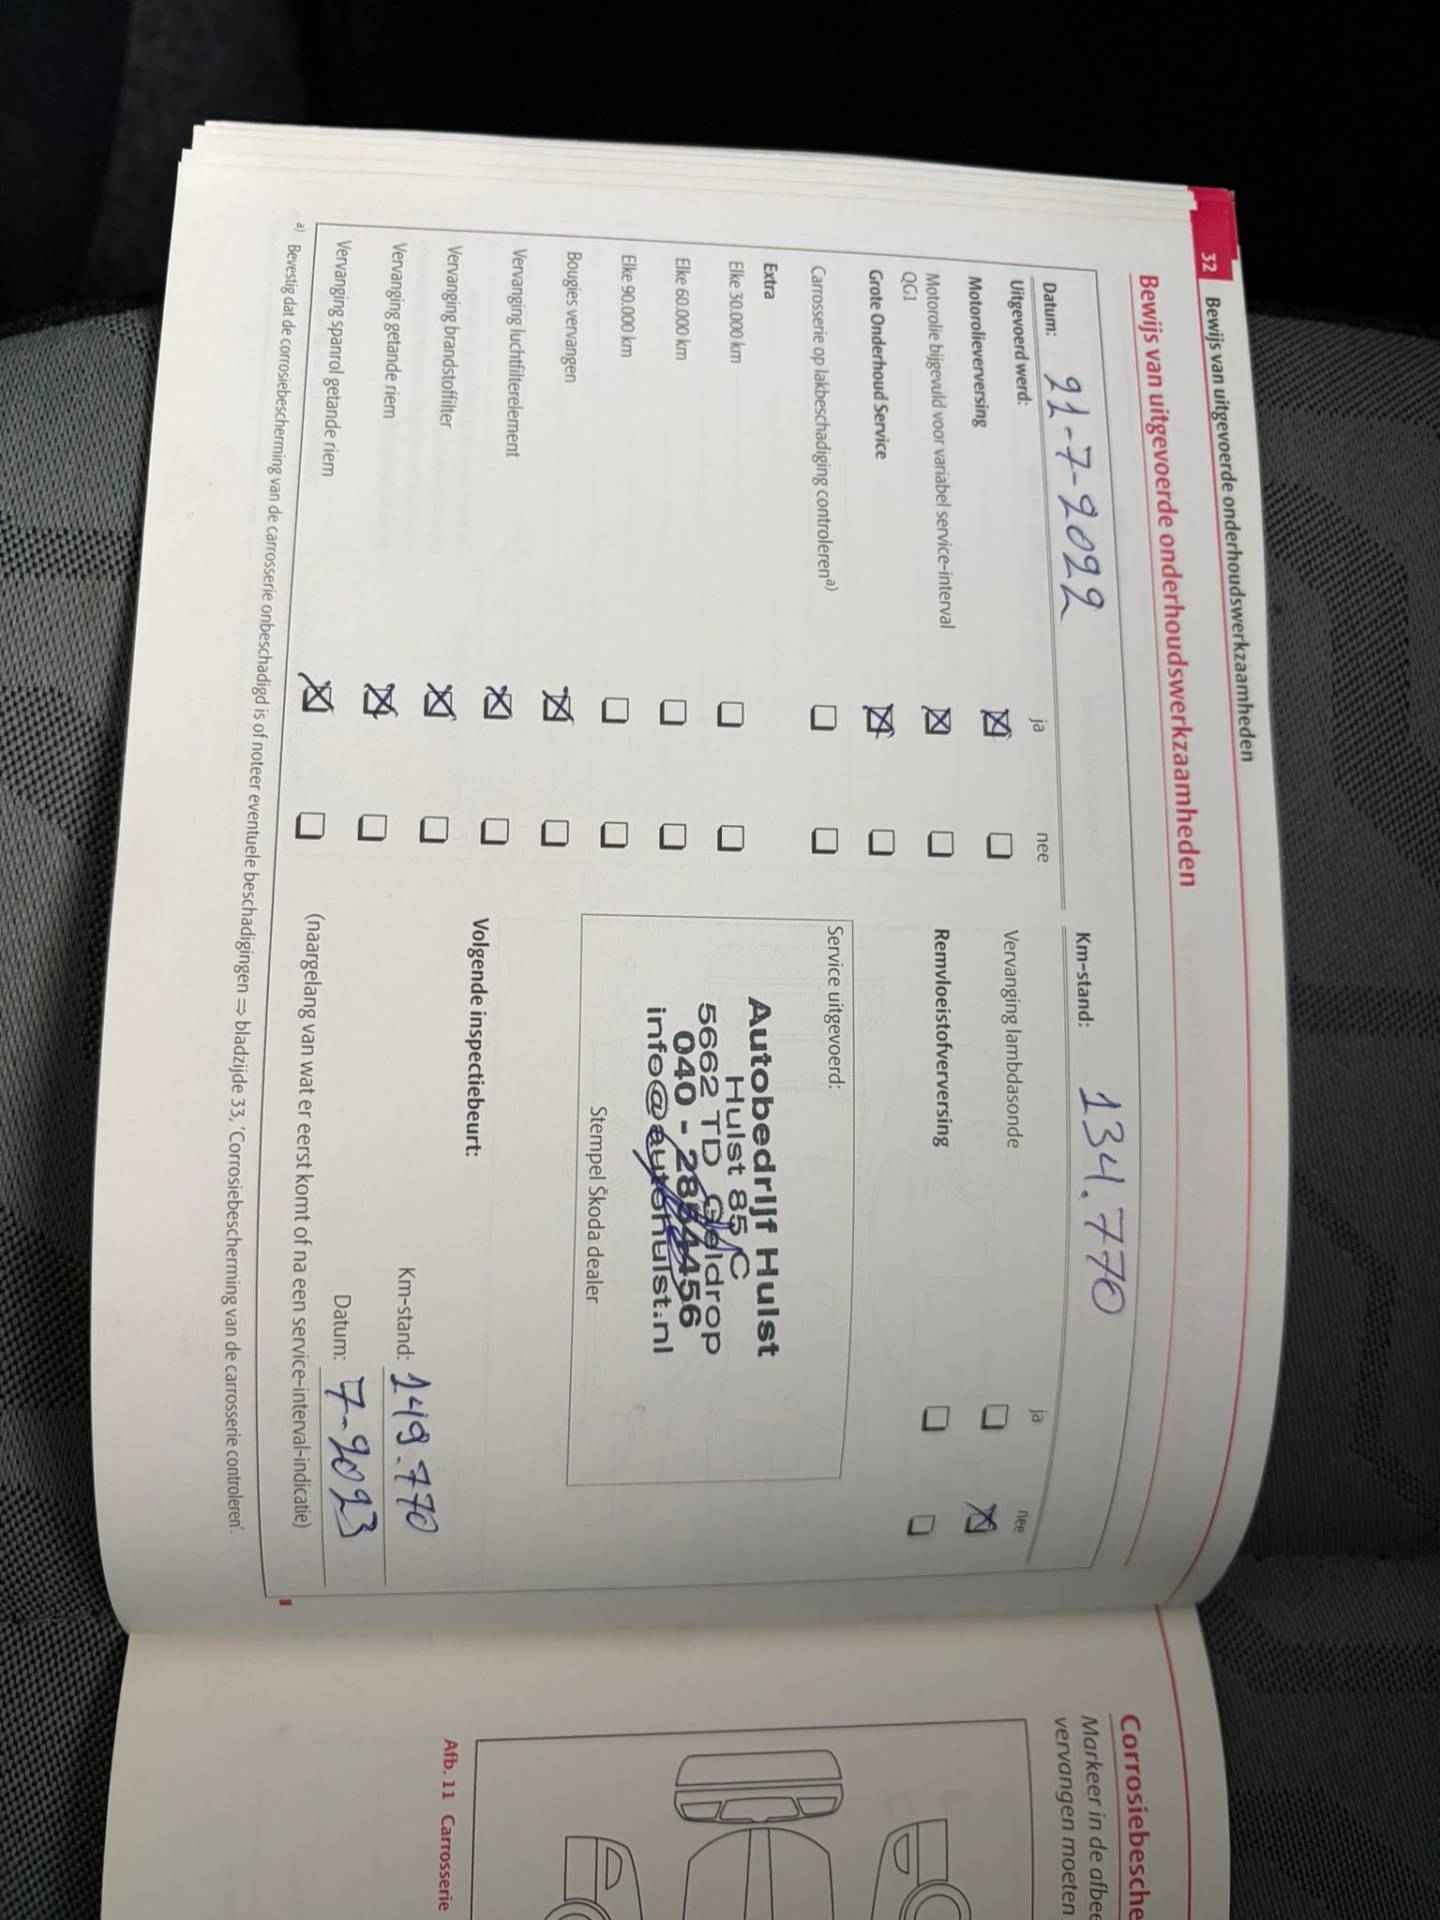 32 Bewijs van uitgevoerde onderhoudswerkzaamheden
Bewijs van uitgevoerde onderhoudswerkzaamheden
Datum: 21-7-2022
Km-stand: 134.770
Uitgevoerd werd:
ja
nee
Motorolieverversing
Motorolie bijgevuld voor variabel service-interval
QG1
Grote Onderhoud Service
Carrosserie op lakbeschadiging controleren a)
Extra
Elke 30.000 km
Elke 60.000 km
Elke 90.000 km
Bougies vervangen
Vervanging luchtfilterelement
Vervanging brandstoffilter
Vervanging getande riem
Vervanging spanrol getande riem
ja
nee
Vervanging lambdasonde
Remvloeistofverversing
Service uitgevoerd:
Autobedrijf Hulst
Hulst 85 C
5662 TD Geldrop
040 - 2854456
info@autohulst.nl
Stempel Škoda dealer
Volgende inspectiebeurt:
Km-stand: 149.770
Datum: 7-2023
(naargelang van wat er eerst komt of na een service-interval-indicatie)
a) Bevestig dat de corrosiebescherming van de carrosserie onbeschadigd is of noteer eventuele beschadigingen ⇒ bladzijde 33, 'Corrosiebescherming van de carrosserie controleren'.
Corrosiebesche
Markeer in de afbee
vervangen moeten
Afb. 11 Carrosserie